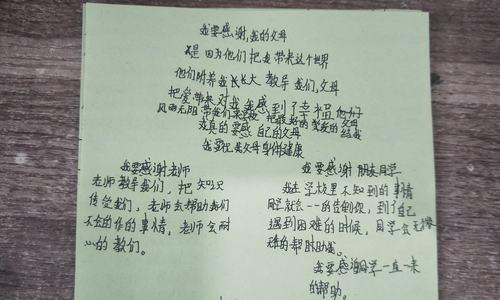 我要感谢,我的父母
是因为他们把我带来这个世界
他们附养我长长大 教导 我们,父母
把爱带来对我 我感到了幸福
风雨无阻 带我们来 把最好的 父母
我真的要感 自己的父母
我要祝我父母身体健康
我要感谢老师
老师教导我们，把知识
传受我们，老师会帮助我们
不会的作的事情，老师会耐
心的教们。
我要感谢 朋友同学
我在学校里不知到的事情
同学就会一一的告制假，到了自己
遇到困难的时候，同学会无
难的帮时助我。
我要感谢同学一直一来
的帮助。